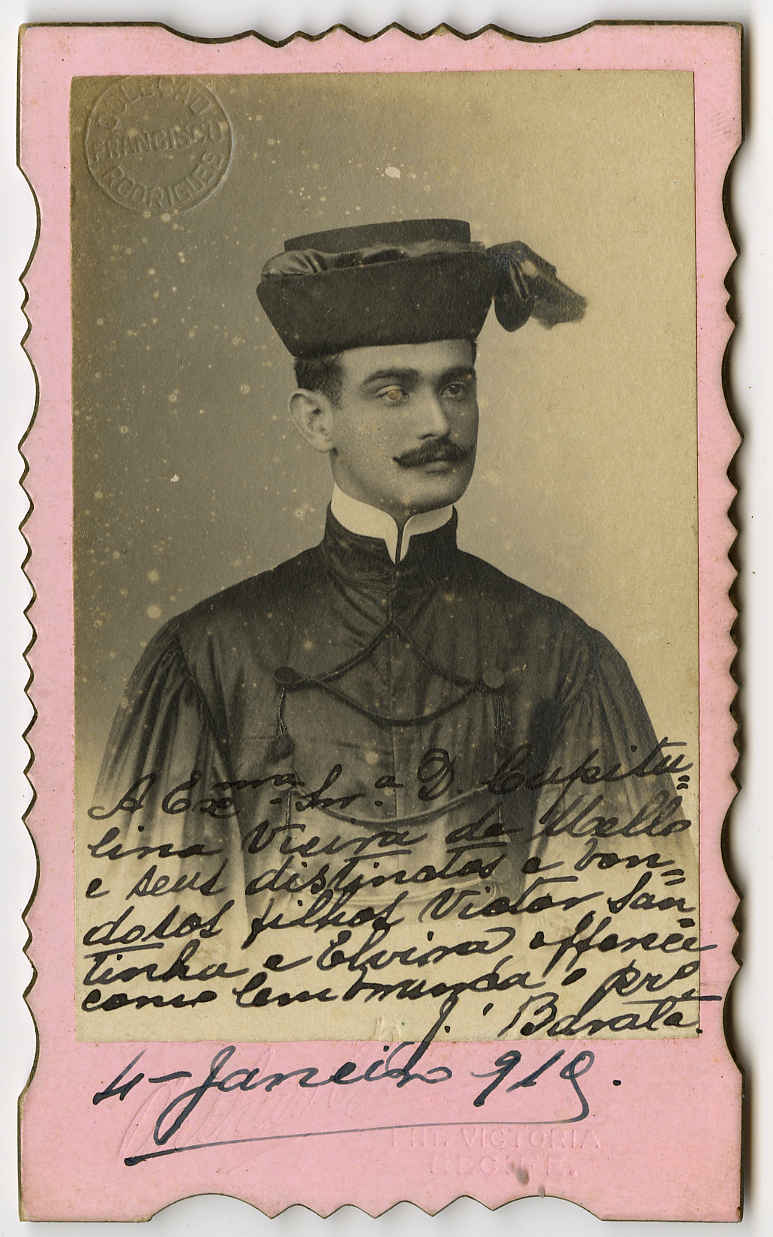 COLEÇÃO
FRANCISCO
RODRIGUES
A Exma. Snr.a D. Capitu=
lina Vieira de Mello
e seus distinctos e bon=
dosos filhos Victor San=
tinha e Elvira, offerece
como lembrança o pr.o
J. Barata.
4-Janeiro 919.
PHT. VICTORIA
RECIFE.